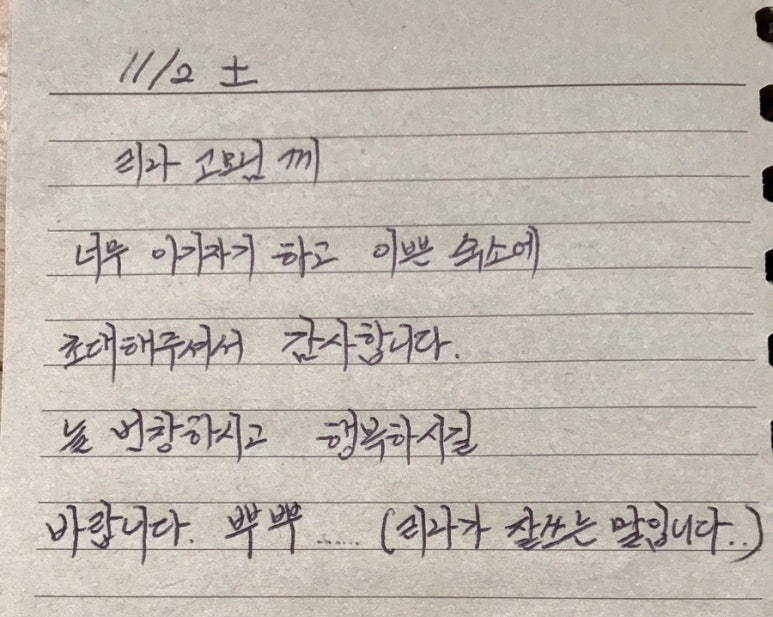 11/2 土
리라 고모님 께
너무 아기자기 하고 이쁜 숙소에
초대해주셔서 감사합니다.
늘 번창하시고 행복하시길
바랍니다. 뿌뿌 ...... (리라가 잘쓰는 말입니다..)